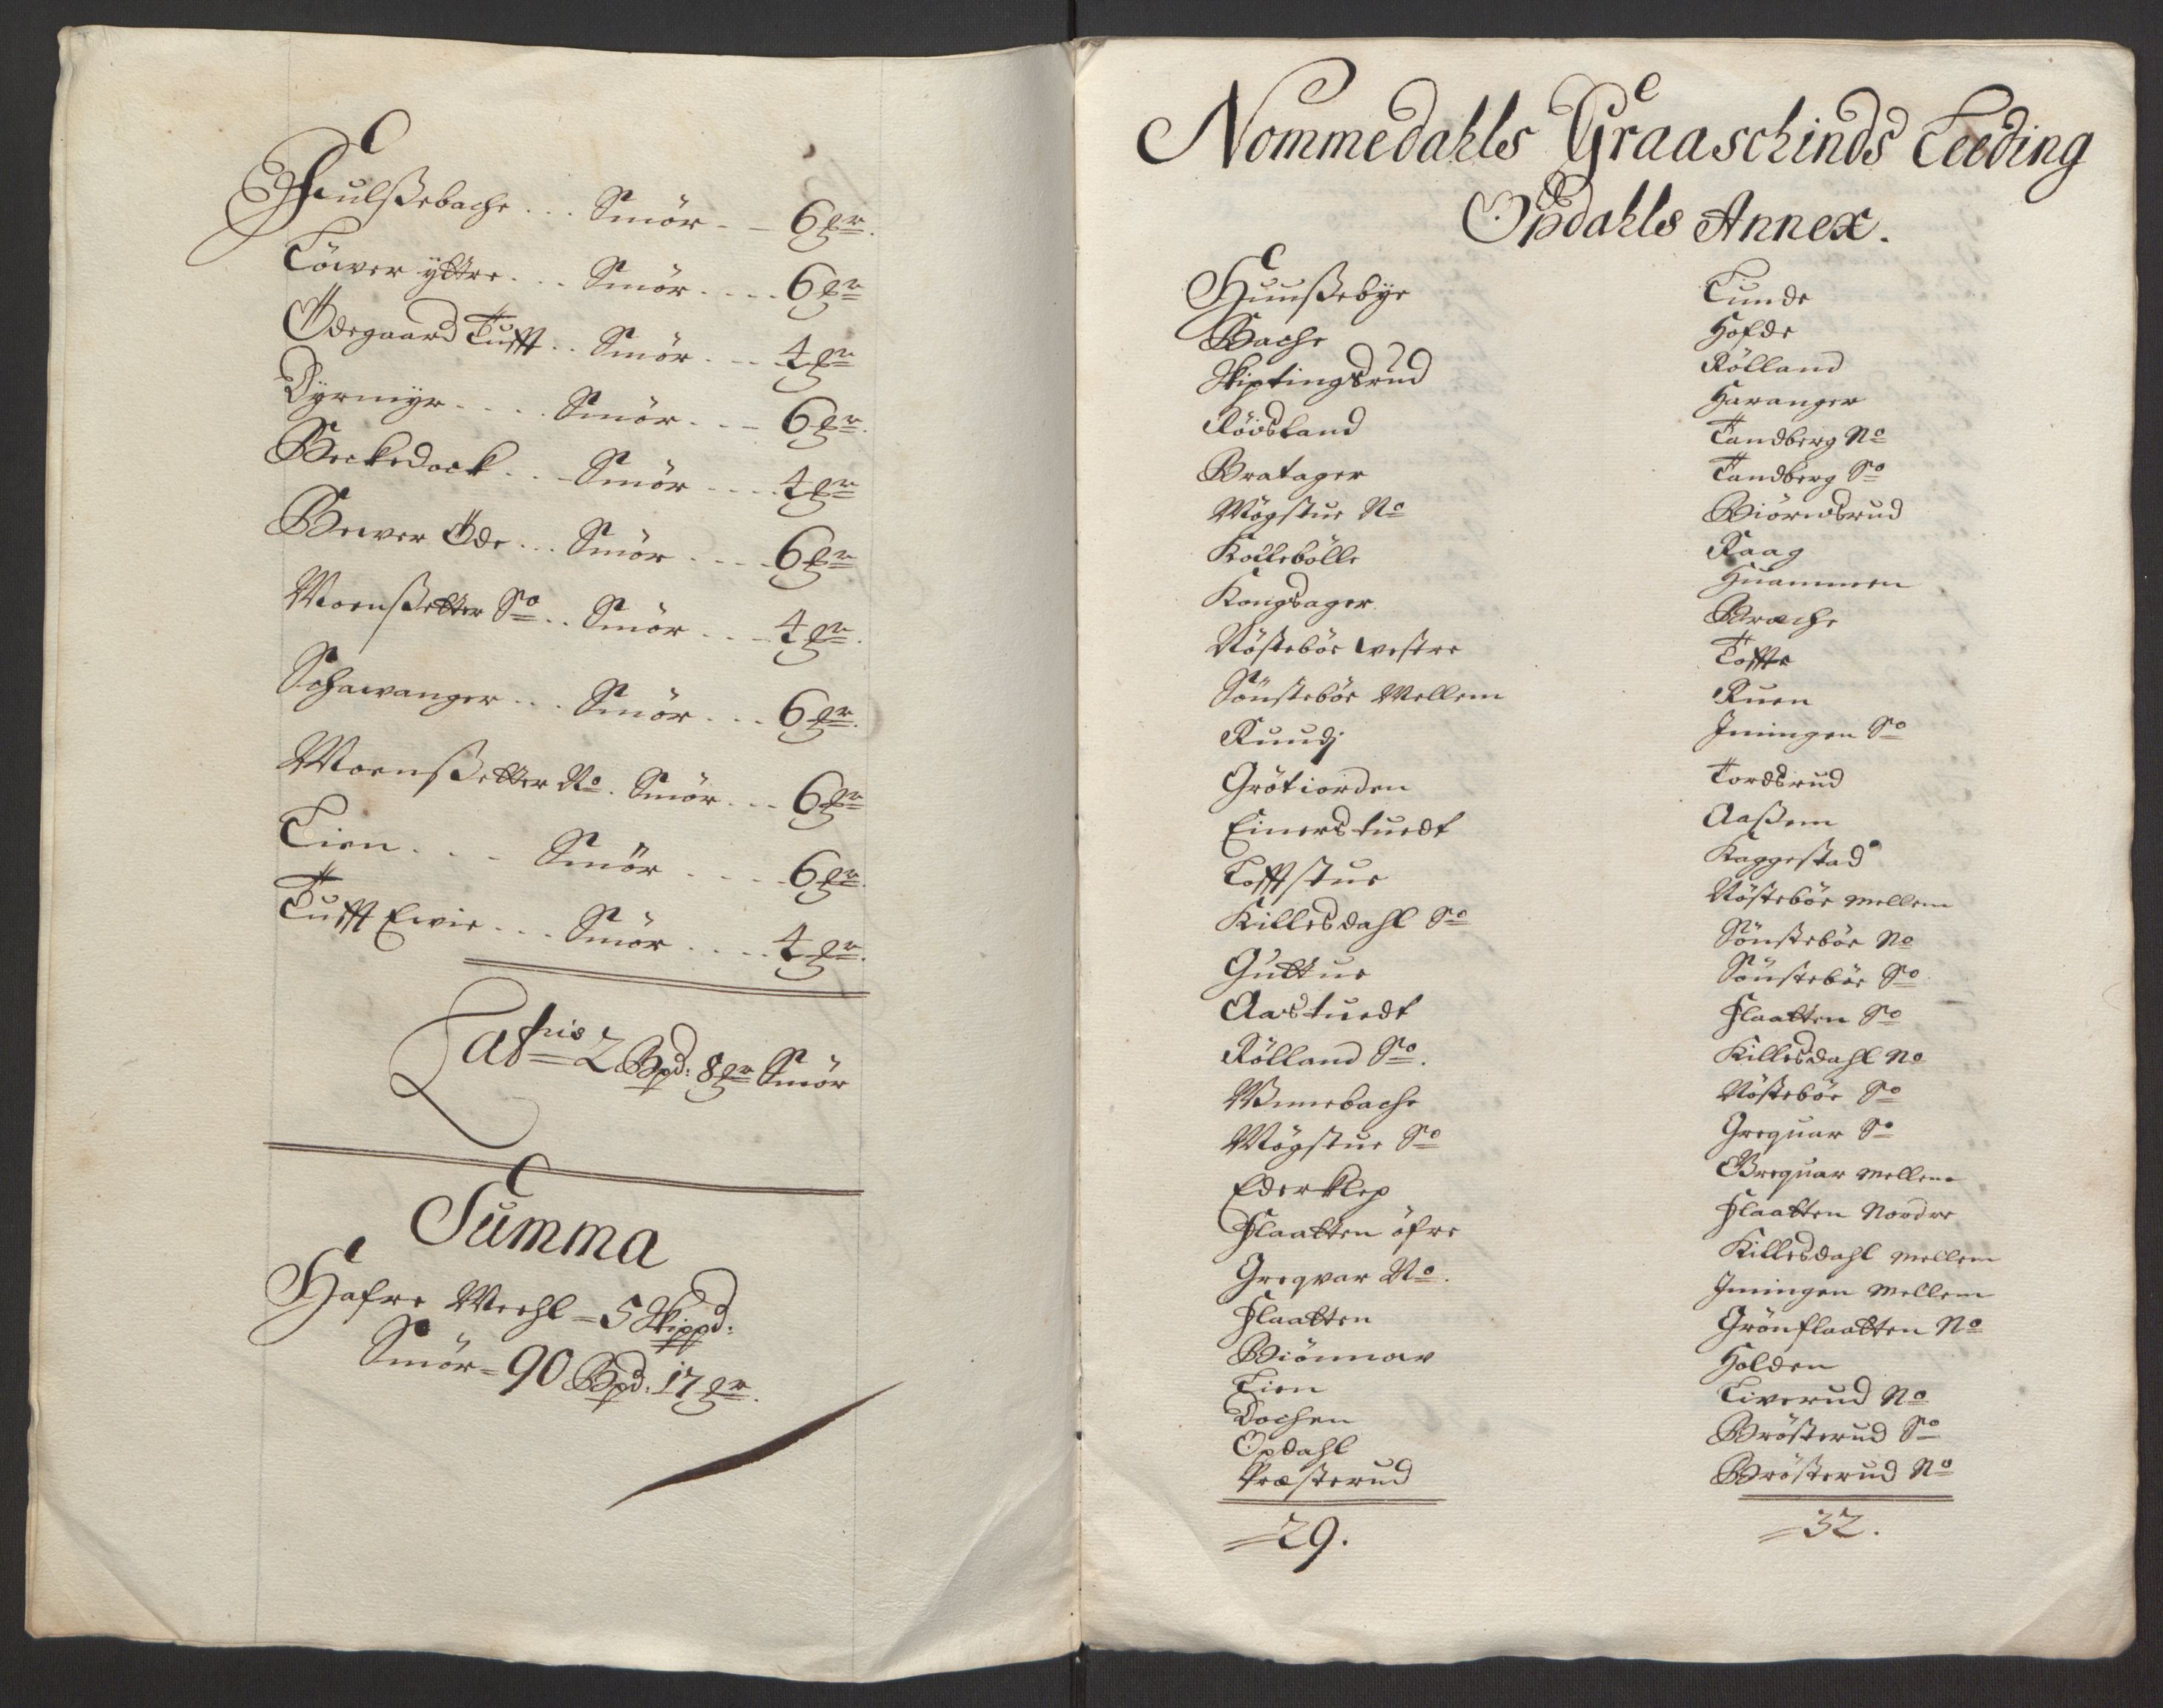 Huulßebache . . . Smör - - 6 pr.
Töwer yttre . . . Smör . . . . 6 pr
Ödegaard Tufft . . Smör . . . 4 pr
Dyrmyr . . . . . Smör . . . 6 pr.
Beckedock . . . Smör . . . . 4 pr
Bewer Öde . . . Smör . . . . 6 pr
Moenßetter Sº . . Smör . . . 4 pr.
Schawanger . . . Smör . . . 6 pr.
Moenßetter Nº . Smör . . . 6 pr
Lien . . . - Smör . . . . 6 pr.
Tufft Ewie . . . Smör . . . . 4 pr.
Latris 2 Bpd: 8 pr Smör
Summa
Hafre Meehl = 5 Skippd:
Smör = 90 Bpd: 17 pr.
Nommedahls Graaschinds Leeding
Opdahls Annex.
Huußebye
Bache
Skiptingsrud
Rödsland
Bratager
Mögstue Nº
Kollebölle
Kongsager
Nösteböe westre
Sönsteböe Mellem
Ruudj
Grötiorden
Einerstuedt
Tofftstue
Killesdahl Sº
Guttue
Aastuedt
Rölland Sº.
Winnebache
Mögstue Sº
Ederklep
Flaatten öfre
Greqvar Nº.
Flaatten
Biönnar
Lien
Dochen
Opdahl
Præsterud
= 29.
Lunde
Hofde
Rölland
Haranger
Tandberg Nº
Tandberg Sº
Biörnsrud
Raag
Huammen
Brache
Toffte
Ruen
Jmingen Sº
Tordsrud
Aaßem
Kaggestad
Nösteböe mellem
Sönsteböe Nº
Sönsteböe Sº
Flaatten Sº
Killesdahl Nº
Nösteböe Sº
Grequar Sº
Grequar mellem
Flaatten Nordre
Killesdahl mellem
Jmingen mellem
Grönflaatten Nº
Holden
Liverud Nº
Brösterud Sº
Brösterud Nº
= 32.